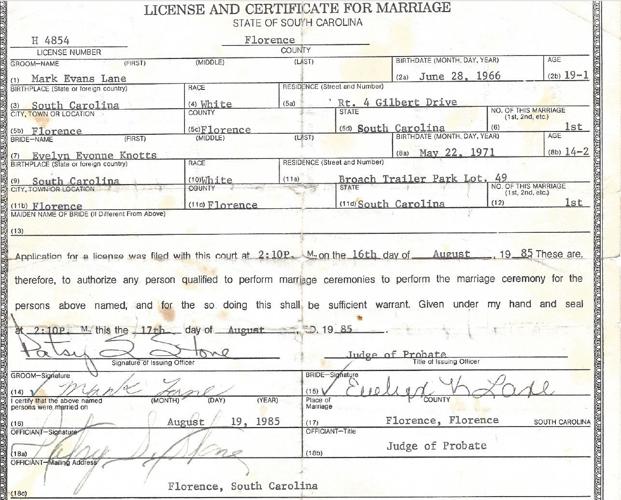 LICENSE AND CERTIFICATE FOR MARRIAGE
STATE OF SOUTH CAROLINA
H 4854 Florence
LICENSE NUMBER COUNTY
GROOM—NAME (FIRST) (MIDDLE) (LAST) BIRTHDATE (MONTH, DAY, YEAR) AGE
(1) Mark Evans Lane (2a) June 28, 1966 (2b) 19-1
BIRTHPLACE (State or foreign country) RACE RESIDENCE (Street and Number)
(3) South Carolina (4) White (5a) Rt. 4 Gilbert Drive
CITY, TOWN OR LOCATION COUNTY STATE NO. OF THIS MARRIAGE (1st, 2nd, etc.)
(5b) Florence (5c) Florence (5d) South Carolina (6) 1st
BRIDE—NAME (FIRST) (MIDDLE) (LAST) BIRTHDATE (MONTH, DAY, YEAR) AGE
(7) Evelyn Evonne Knotts (8a) May 22, 1971 (8b) 14-2
BIRTHPLACE (State or foreign country) RACE RESIDENCE (Street and Number)
(9) South Carolina (10) White (11a) Broach Trailer Park Lot. 49
CITY, TOWN OR LOCATION COUNTY STATE NO. OF THIS MARRIAGE (1st, 2nd, etc.)
(11b) Florence (11c) Florence (11d) South Carolina (12) 1st
MAIDEN NAME OF BRIDE (If Different From Above)
(13)
Application for a license was filed with this court at 2:10P. M. on the 16th day of August, 19 85 These are,
therefore, to authorize any person qualified to perform marriage ceremonies to perform the marriage ceremony for the
persons above named, and for the so doing this shall be sufficient warrant. Given under my hand and seal
at 2:10P. M. this the 17th day of August D. 19 85.
Patsy S. Stone Judge of Probate
Signature of Issuing Officer Title of Issuing Officer
GROOM—Signature BRIDE—Signature
(14) Mark Lane (15) Evelyn K Lane
I certify that the above named (MONTH) (DAY) (YEAR) Place of COUNTY
persons were married on Marriage
(16) August 19, 1985 (17) Florence, Florence SOUTH CAROLINA
OFFICIANT—Signature OFFICIANT—Title
(18a) Patsy S. Stone (18b) Judge of Probate
OFFICIANT—Mailing Address
(18c) Florence, South Carolina